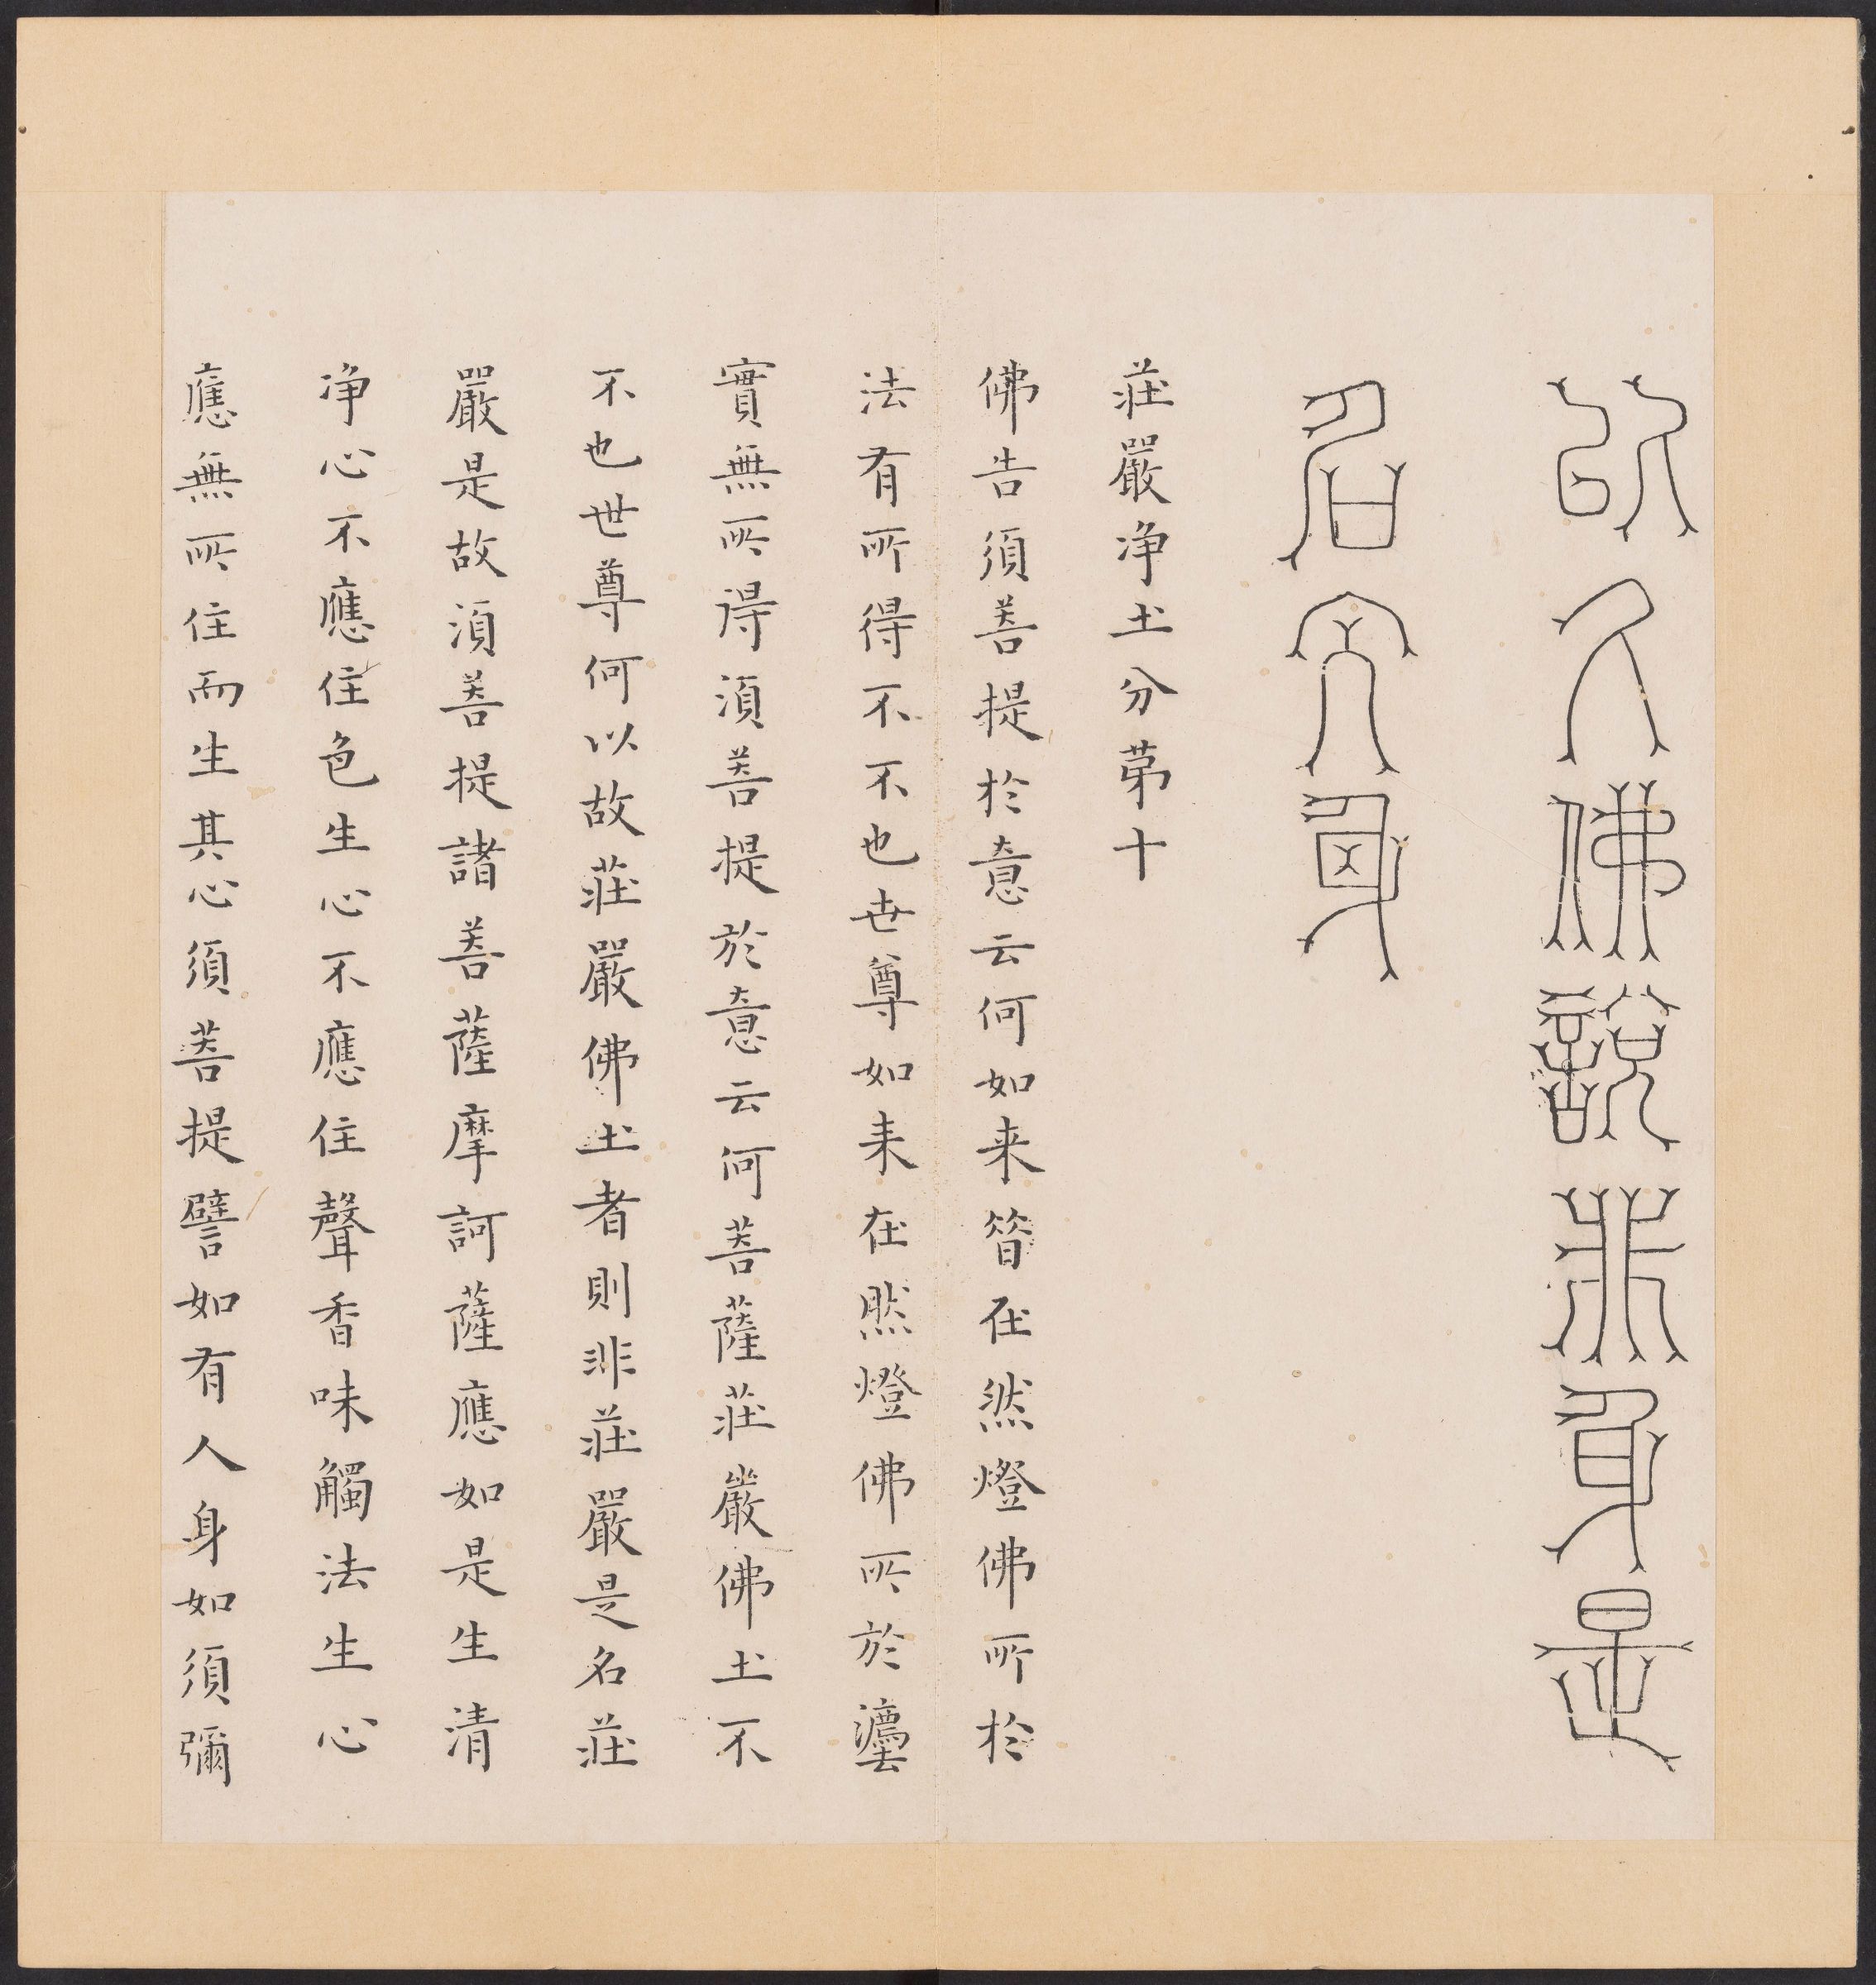 以人佛說非身是
名大身
莊嚴净土分苐十
佛告須菩提於意云何如来昝在然燈佛所於
法有所得不不也世尊如来在然燈佛所於灋
實無所得湏菩提於意云何菩薩莊嚴佛土不
不也世尊何以故莊嚴佛土者則非莊嚴是名莊
嚴是故湏菩提諸菩薩摩訶薩應如是生清
净心不應住色生心不應住聲香味觸法生心
應無所住而生其心須菩提譬如有人身如須彌